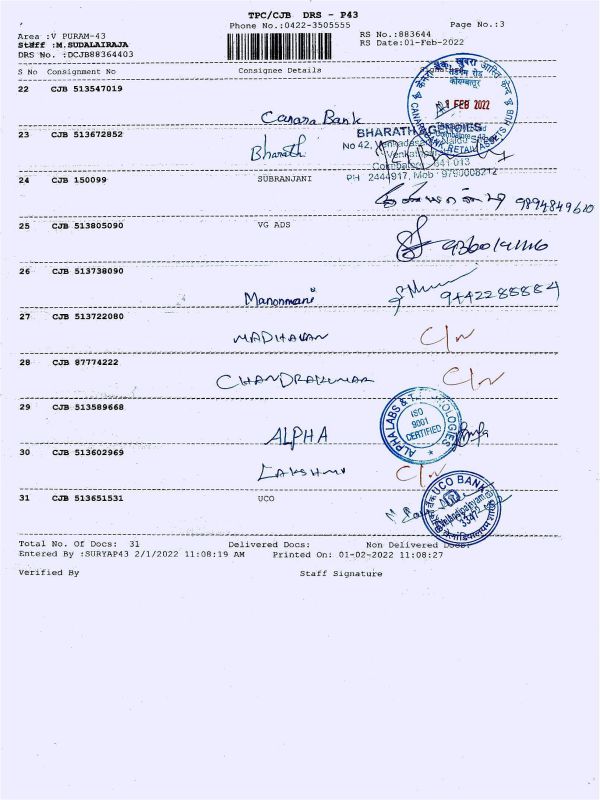 TPC/CJB DRS - P43
Phone No.:0422-3505555 Page No.:3
Area :V PURAM-43 RS No.:883644
Staff :M.SUDALAIRAJA RS Date:01-Feb-2022
DRS No. :DCJB88364403
S No Consignment No Consignee Details
22 CJB 513547019
Canara Bank
FEB 2022
23 CJB 513672852
Bharath
BHARATH AGENCIES
No 42,
Coimbatore 641 013
PH 2444917, Mob 9790008212
24 CJB 150099 SUBRANJANI
9894849610
25 CJB 513805090 VG ADS
26 CJB 513738090
Manonmani 9442288884
27 CJB 513722080
MADHAVAN C/n
28 CJB 87774222
CHANDRAKUMAR C/n
29 CJB 513589668
ALPHA
ALPHA LABS & TECHNOLOGIES
ISO
9001
CERTIFIED
30 CJB 513602969
LAKSHMI C/n
31 CJB 513651531 UCO
UCO BANK
Total No. Of Docs: 31 Delivered Docs: Non Delivered Docs:
Entered By :SURYAP43 2/1/2022 11:08:19 AM Printed On: 01-02-2022 11:08:27
Verified By Staff Signature